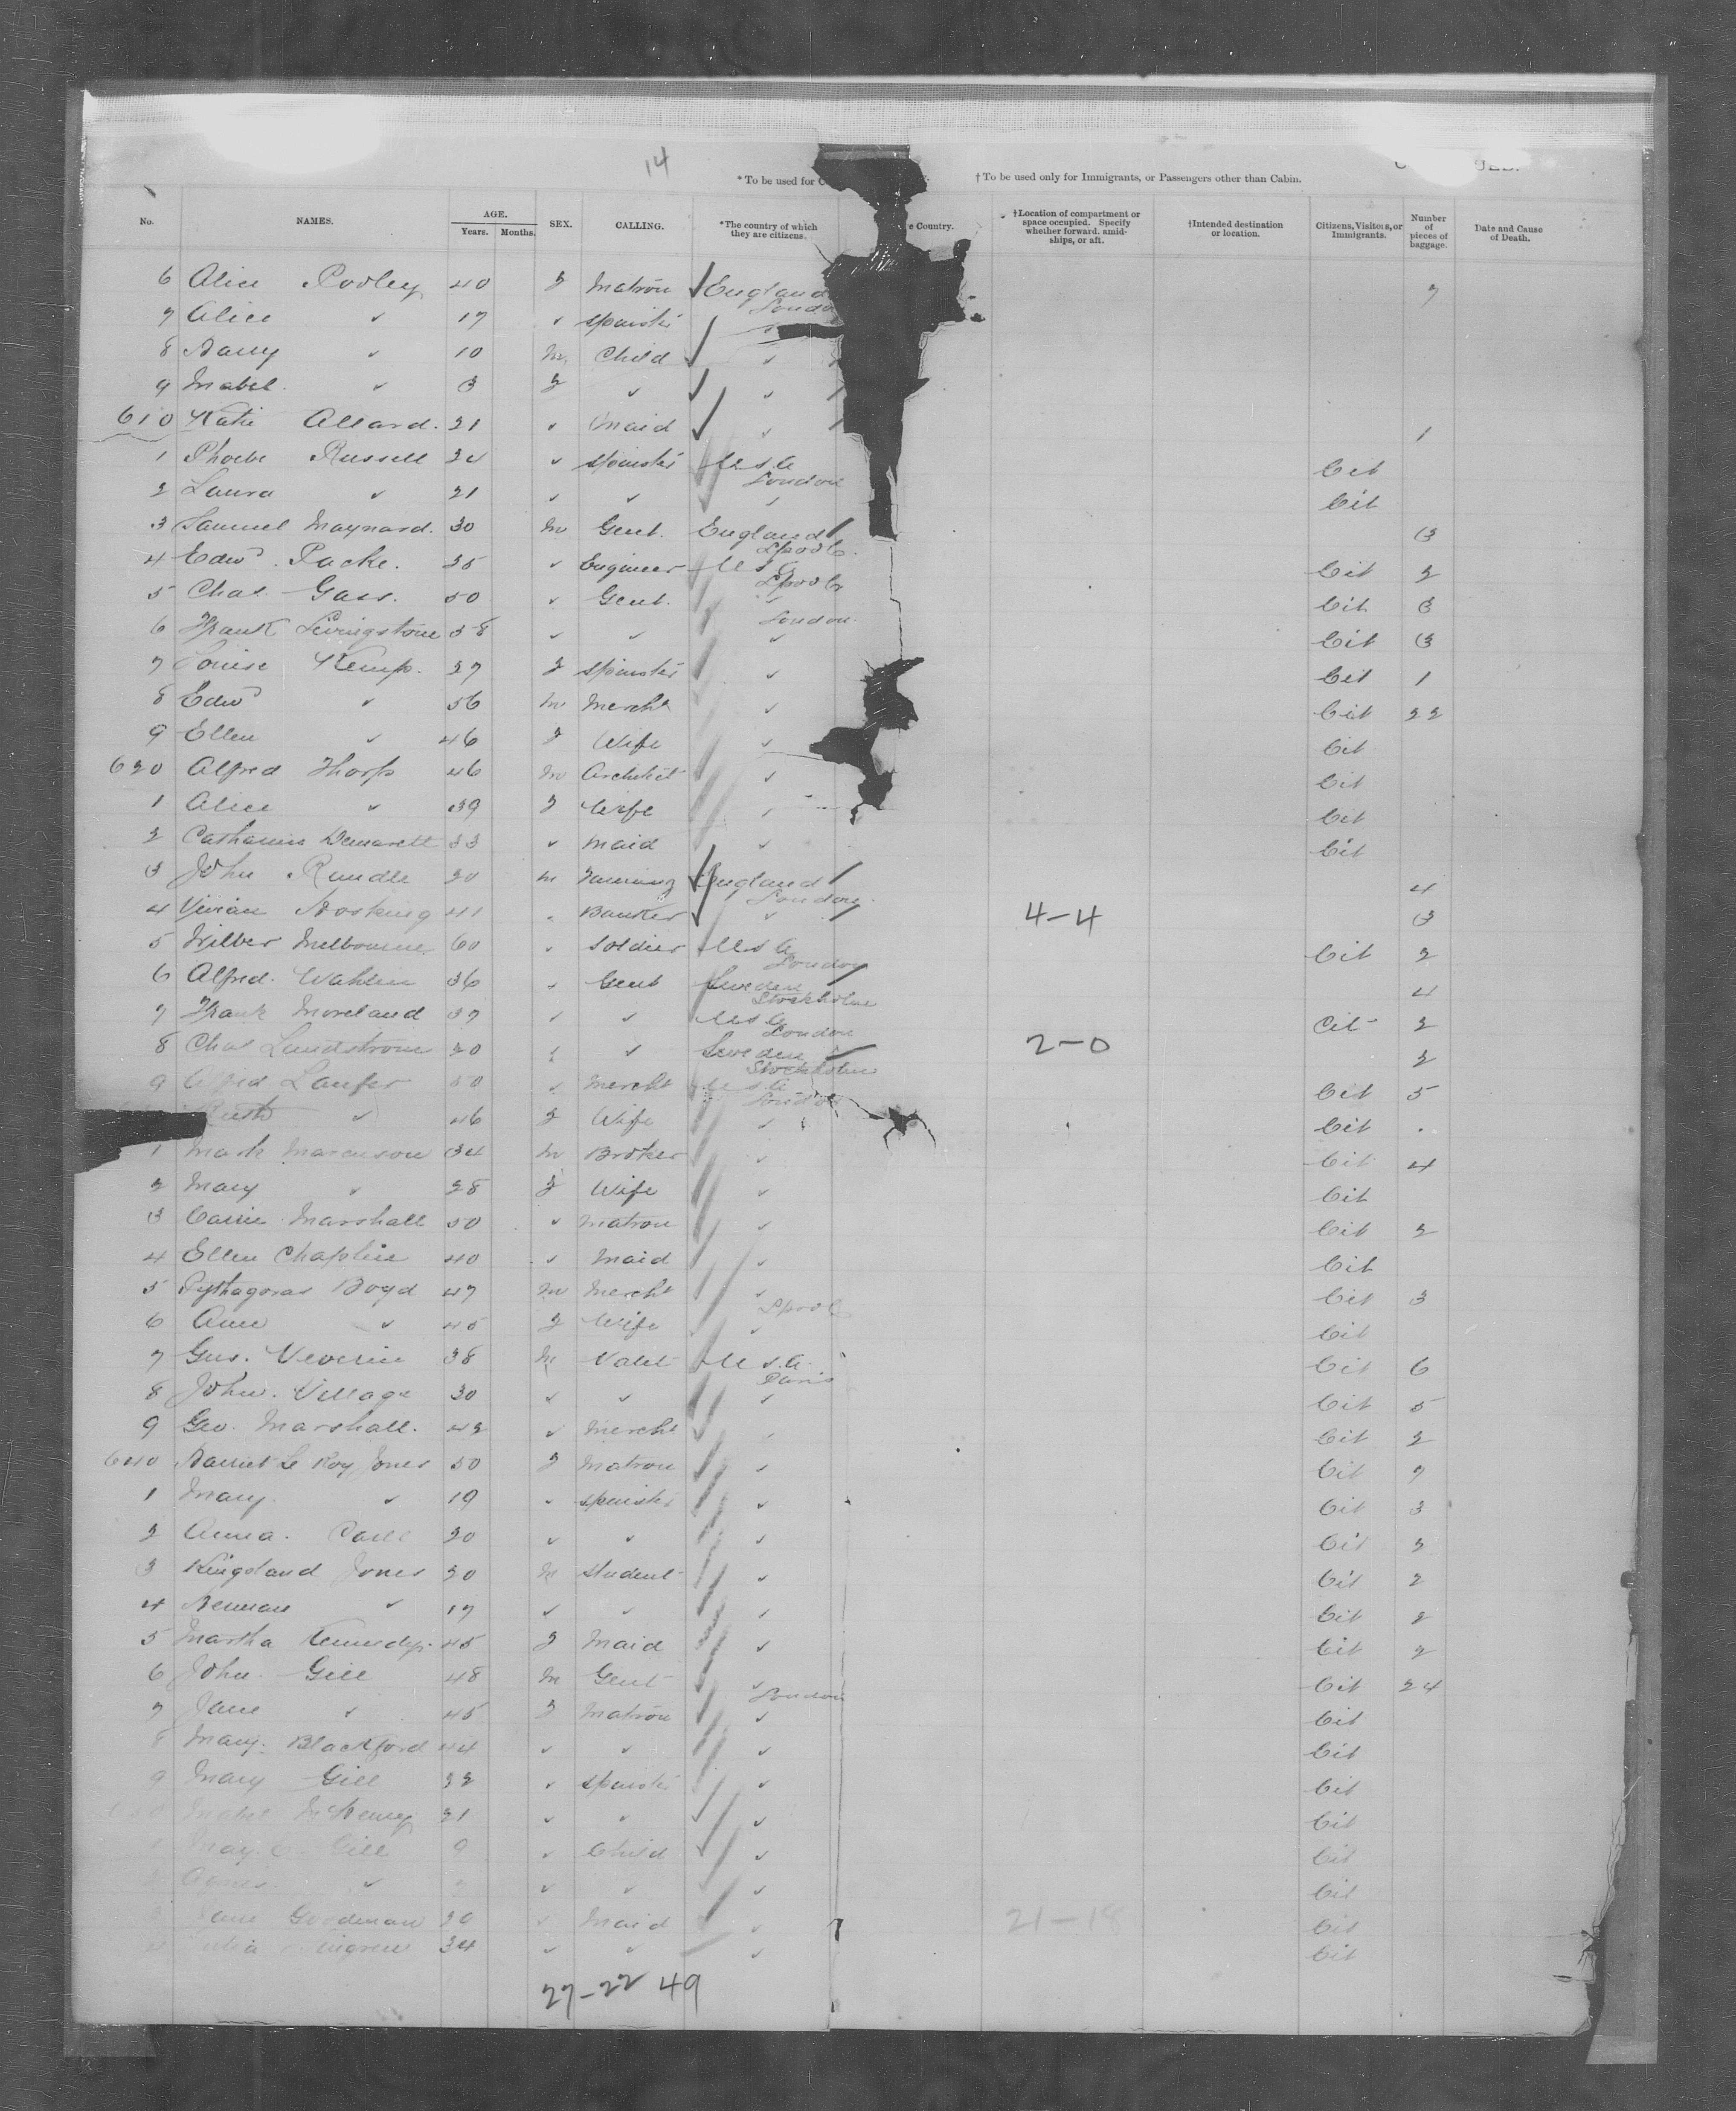 14
*To be used for C † To be used only for Immigrants, or Passengers other than Cabin.
No. NAMES. AGE. Years. Months. SEX. CALLING. *The country of which they are citizens. e Country. †Location of compartment or space occupied. Specify whether forward, amidships, or aft. †Intended destination or location. Citizens, Visitors, or Immigrants. Number of pieces of baggage. Date and Cause of Death.
6 Alice Pooley 40 F Matron England 7
London
7 Alice " 17 " Spinster "
8 Harry " 10 M Child "
9 Mabel " 3 F " "
610 Katie Allard. 21 " Maid " 1
1 Phoebe Russell 24 " Spinster U.S.A Cit
London
2 Laura " 21 " " " Cit
3 Samuel Maynard. 30 M Gent. England 3
Lpool
4 Edwd. Packe. 35 " Engineer U.S.A Cit 2
Lpool
5 Chas. Gass. 50 " Gent. " Cit 3
London
6 Frank Livingstone 38 " " " Cit 3
7 Louise Kemp. 27 F Spinster " Cit 1
8 Edwd " 56 M Mercht " Cit 22
9 Ellen " 46 F Wife " Cit
620 Alfred Thorp 46 M Architect " Cit
1 Alice " 39 F Wife " Cit
2 Catharine Demarett 33 " Maid " Cit
3 John Rundle 20 M England 4
London
4 Vivian Hosking 41 " Banker " 4-4 3
5 Wilber Melbourne 60 " Soldier U.S.A Cit 2
London
6 Alfred. Wahlin 36 " Gent Sweden 4
Stockholm
7 Frank Moreland 37 " " U.S.A Cit 2
London
8 Chas Lundstrom 20 " " Sweden 2-0 2
Stockholm
9 Alfred Laufer 50 " Mercht U.S.A Cit 5
London
" 46 F Wife " Cit
1 Mark Marcuson 34 M Broker " Cit 4
2 Mary " 28 F Wife " Cit
3 Carrie Marshall 50 " Matron " Cit 2
4 Ellen Chaplin 40 " Maid " Cit
5 Pythagoras Boyd 47 M Mercht " Cit 3
Lpool
6 Ann " 45 F Wife " Cit
7 Gus. Veverin 38 M Valet U.S.A Cit 6
Paris
8 John. Village 30 " " " Cit 5
9 Geo. Marshall. 42 " Mercht " Cit 2
640 Harriet Le Roy Jones 50 F Matron " Cit 7
1 Mary " 19 " Spinster " Cit 3
2 Anna. 20 " " " Cit 2
3 Kingsland Jones 20 M Student " Cit 2
4 Herman " 17 " " " Cit 2
5 Martha Kennedy. 45 F Maid " Cit 2
6 John. Gill 48 M Gent " Cit 24
London
7 Jane " 45 F Matron " Cit
8 Mary. Blackford 44 " " " Cit
9 Mary Gill 22 " Spinster " Cit
Mabel McHenry 21 " " " Cit
1 May Gill 9 " Child " Cit
Agnes " " " " Cit
Goodman " Maid " 21-18 Cit
34 " " " Cit
27-22 49